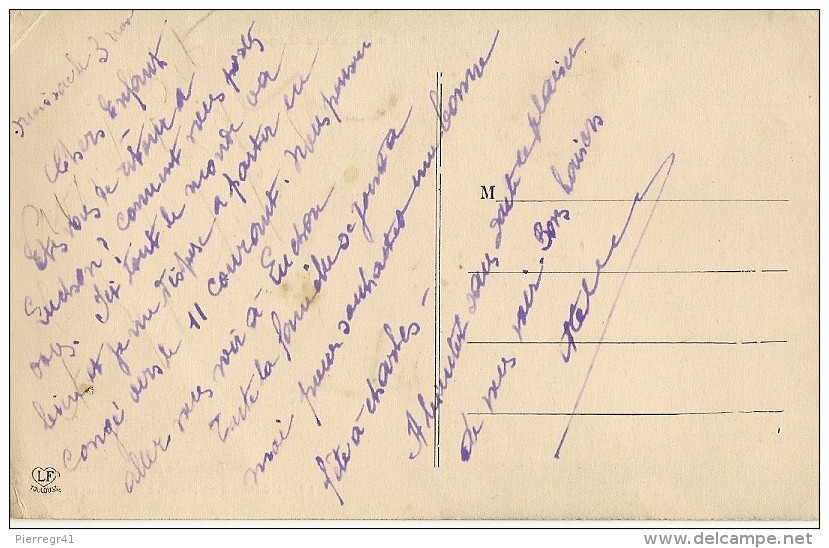 3 nov
Chers Enfants
Etes vous de retour à
Euchon? comment vous portez
vous. Ici tout le monde va
bien et je me dispose a partir en
congé vers le 11 courant. Nous pensons
aller vous voir à Euchon
Toute la famille se joint a
moi pour souhaiter une bonne
fête à Charles -
A bientôt sans doute le plaisir
de vous voir. Bons baisers
M
LF
TOULOUSE
Pierregr41
www.delcampe.net